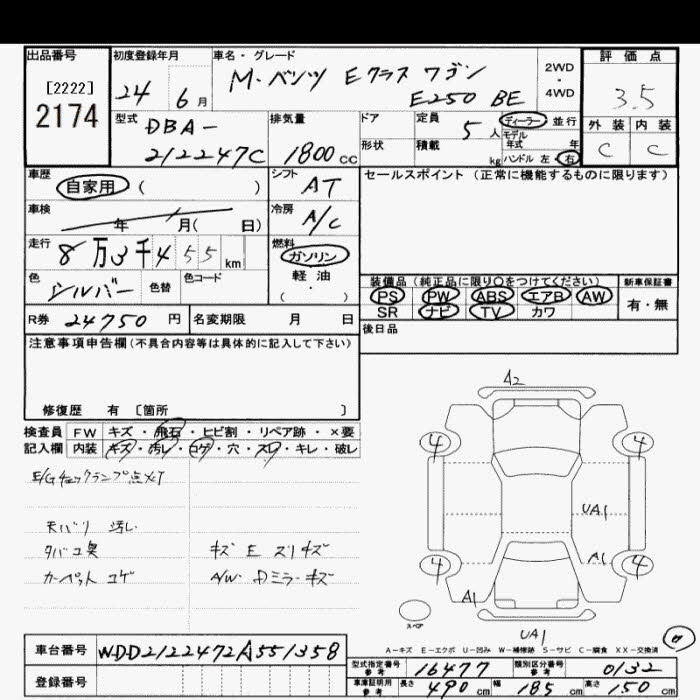 出品番号
[2222]
2174
初度登録年月
24 6月
車名・グレード
M・ベンツ Eクラス ワゴン
E250 BE
2WD
・
4WD
評価点
3.5
外装 内装
C C
型式
DBA-
212247C
排気量
1800 CC
ドア
形状
定員
5人
積載
kg
ディーラー 並行
モデル
年式 年
ハンドル 左・右
車歴
自家用 ( )
シフト
AT
車検
年 月( 日)
冷房
A/C
走行
8万3千455km
燃料
ガソリン
軽油
( ・ )
色
シルバー
色替
色コード
R券 24750円
名変期限 月 日
セールスポイント (正常に機能するものに限ります)
装備品 (純正品に限り○をつけてください)
PS PW ABS エアB AW
SR ナビ TV カワ
新車保証書
有・無
後日品
注意事項申告欄(不具合内容等は具体的に記入して下さい)
修復歴 有 〔箇所 〕
検査員 FW キズ・飛石・ヒビ割・リペア跡・×要
記入欄 内装 キズ・汚レ・コゲ・穴・スレ・キレ・破レ
E/Gチェックランプ点メT
天バリ 汚レ
タバコ臭
カーペット コゲ
キズ E スリキズ
A/W・Dミラーキズ
A2
4 4
UA1
A1
4 4
A1
スペア
UA1
A-キズ E-エクボ U-凹み W-補修跡 S-サビ C-腐食 XX-交換済
車台番号 WDD2122472A551358
登録番号
型式指定番号
参考 16477
類別区分番号
参考 0132
車庫証明用
参考
長さ 490cm 幅 185cm 高さ 150cm